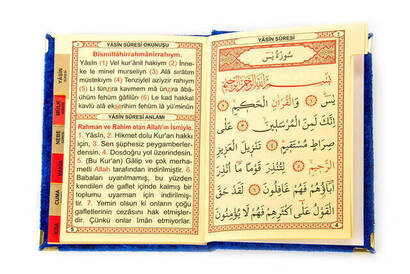 YÂSÎN SÛRESİ OKUNUŞU
Bismillâhirrahmânirrahıym.
Yâsîn (1) Vel kur'ânil hakiym (2) İnne-
ke le minel murseliyn (3) Alâ sırâtım
müstekıym (4) Tenziylel aziyzir rahıym
(5) Li tünzira kavmem mâ ünzira âbâ-
ühüm fehüm ğâfilûn (6) Le kad hakkal
kavlü alâ ekserihim fehüm lâ yü'minûn
YÂSÎN SÛRESİ ANLAMI
Rahman ve Rahim olan Allah'ın İsmiyle.
1. Yâsîn, 2. Hikmet dolu Kur'an hakkı
için, 3. Sen şüphesiz peygamberler-
densin. 4. Dosdoğru yol üzerindesin.
5. (Bu Kur'an) Galip ve çok merha-
metli Allah tarafından indirilmiştir. 6.
Babaları uyarılmamış, bu yüzden
kendileri de gaflet içinde kalmış bir
toplumu uyarman için indirilmiş-
tir. 7. Yemin olsun ki onların çoğu
gafletlerinin cezasını hak etmişler-
dir. Çünkü onlar îman etmiyorlar.
5
YÂSÎN
MÜLK
NEBE
CUMA
YÂSÎN SÛRESİ
سُورَةُ يٰسٓ
بِسْمِ اللّٰهِ الرَّحْمٰنِ الرَّحِيمِ
يٰسٓ ﴿١﴾ وَالْقُرْاٰنِ الْحَكِيمِ ﴿٢﴾
اِنَّكَ لَمِنَ الْمُرْسَلِينَ ﴿٣﴾ عَلٰى
صِرَاطٍ مُسْتَقِيمٍ ﴿٤﴾ تَنْزِيلَ الْعَزِيزِ
الرَّحِيمِ ﴿٥﴾ لِتُنْذِرَ قَوْمًا مَٓا اُنْذِرَ
اٰبَٓاؤُهُمْ فَهُمْ غَافِلُونَ ﴿٦﴾ لَقَدْ حَقَّ
الْقَوْلُ عَلٰٓى اَكْثَرِهِمْ فَهُمْ لَا يُؤْمِنُونَ
4